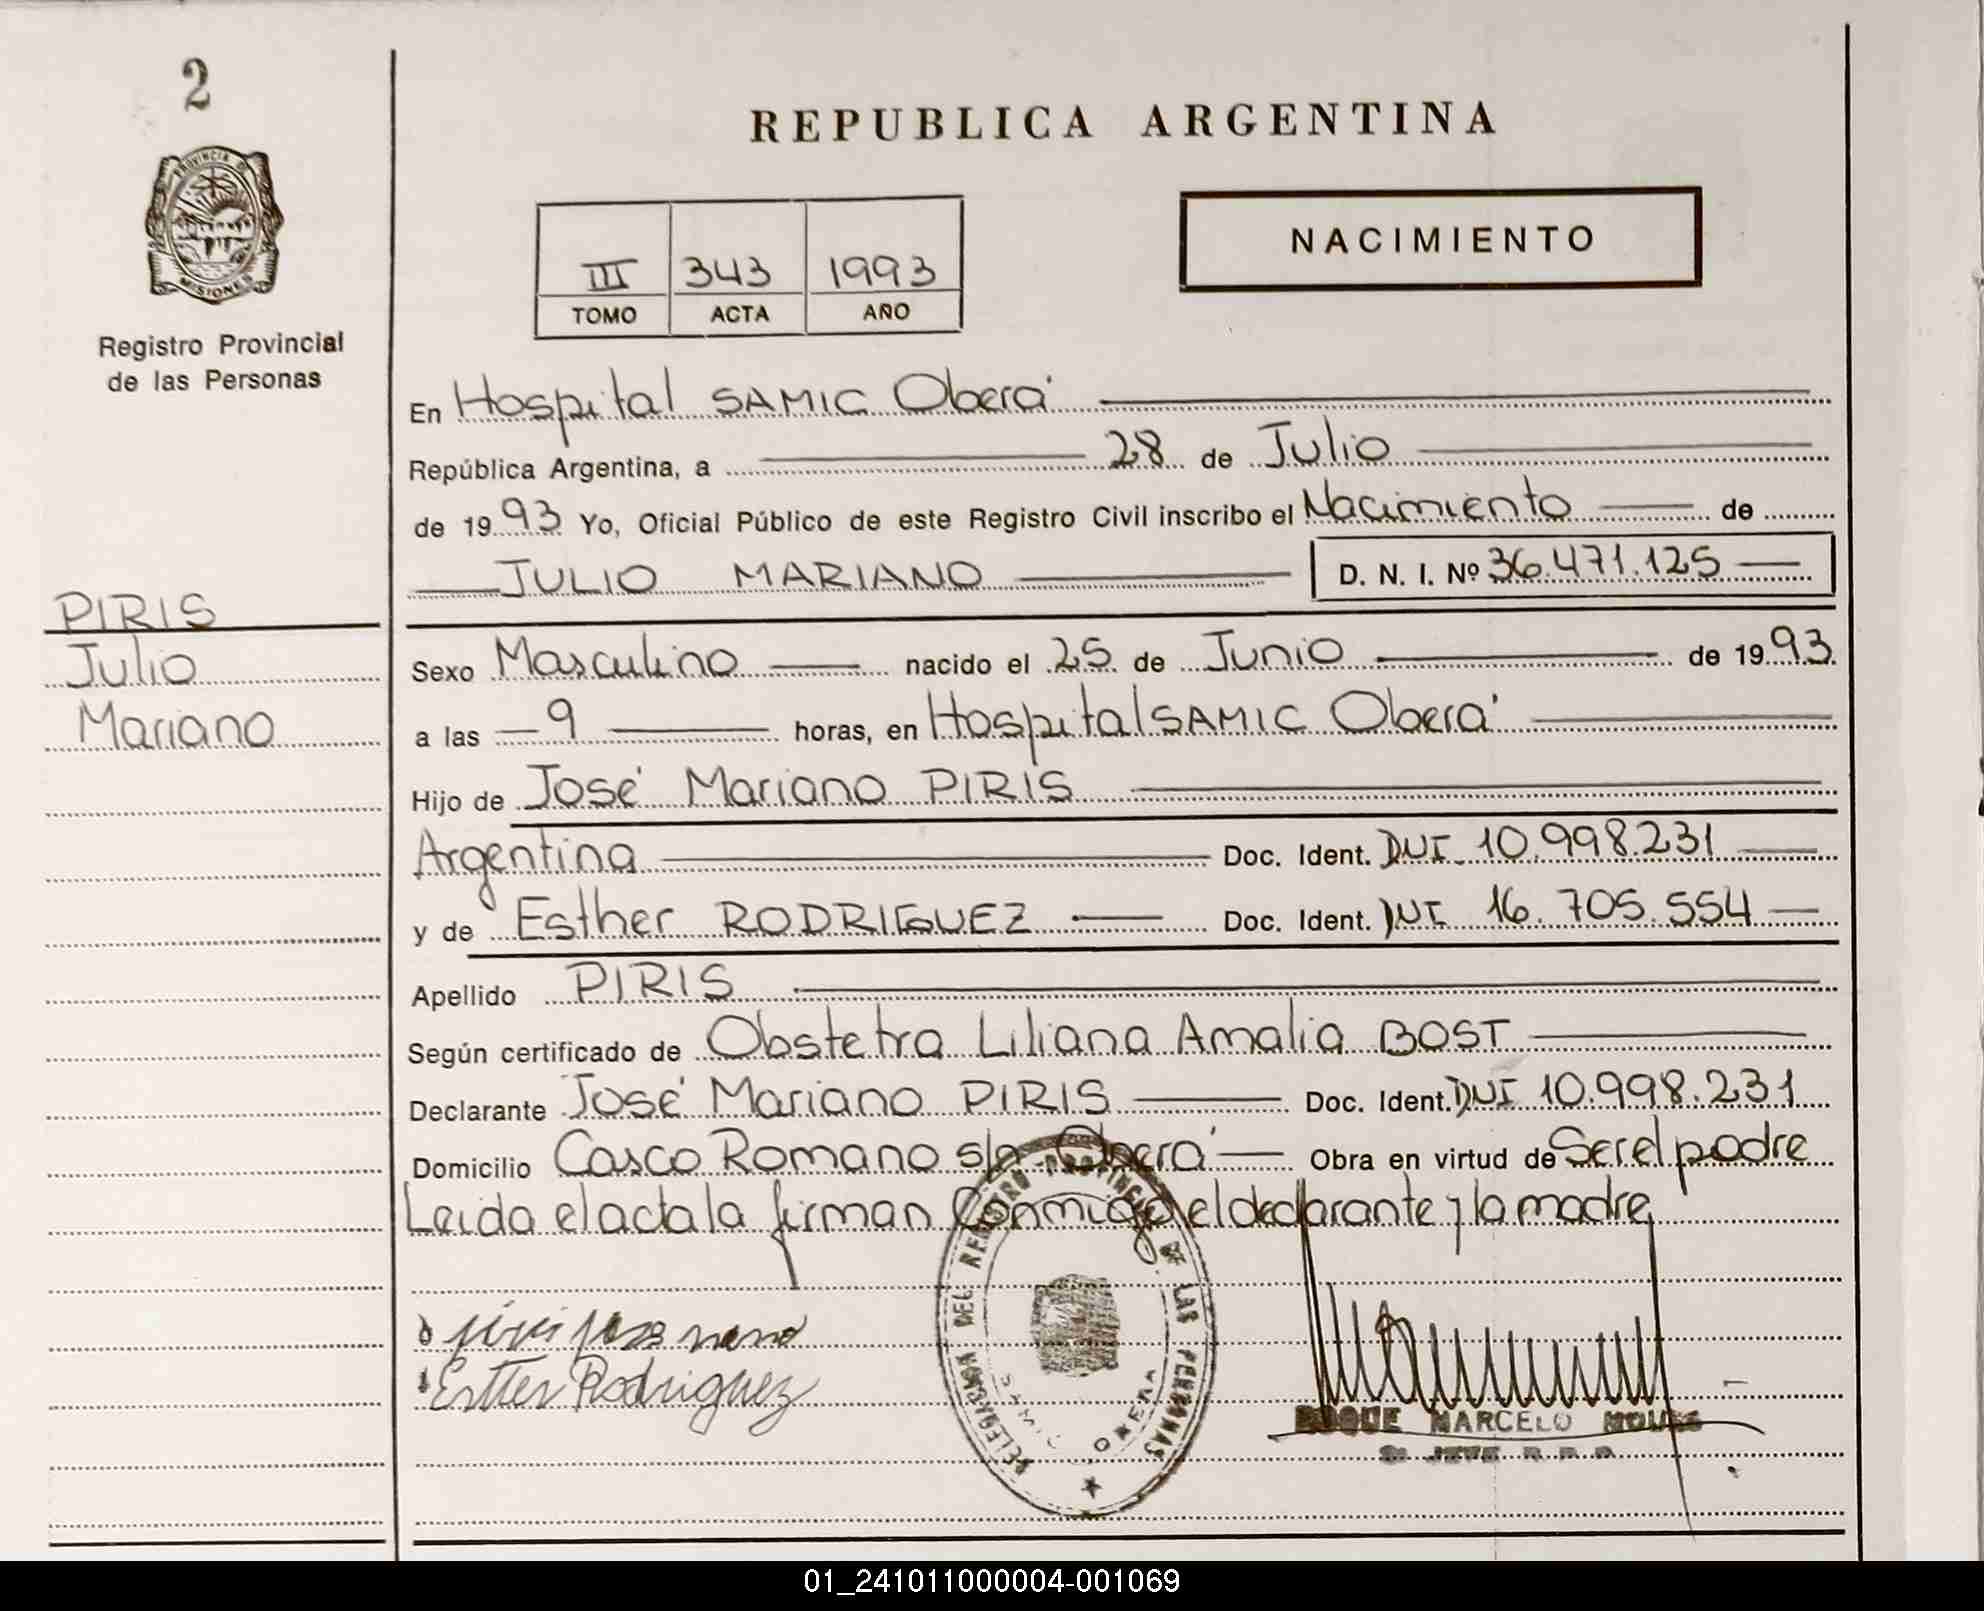 2
PROVINCIA DE
MISIONES
Registro Provincial
de las Personas
REPUBLICA ARGENTINA
III 343 1993
TOMO ACTA AÑO
NACIMIENTO
En Hospital SAMIC Oberá
República Argentina, a 28 de Julio
de 1993 Yo, Oficial Público de este Registro Civil inscribo el Nacimiento de
JULIO MARIANO D. N. I. Nº 36.471.125
PIRIS
Julio
Mariano
Sexo Masculino nacido el 25 de Junio de 1993
a las 9 horas, en Hospital SAMIC Oberá
Hijo de José Mariano PIRIS
Argentina Doc. Ident. DNI 10.998.231
y de Esther RODRIGUEZ Doc. Ident. DNI 16.705.554
Apellido PIRIS
Según certificado de Obstetra Liliana Amalia BOST
Declarante José Mariano PIRIS Doc. Ident. DNI 10.998.231
Domicilio Casco Romano s/n Oberá Obra en virtud de Ser el padre
Leida el acta la firman Conmigo el declarante y la madre
Esther Rodriguez
DELEGACION DEL REGISTRO PROVINCIAL DE LAS PERSONAS
OBERA
ROQUE MARCELO
JEFE R. P. P.
01_241011000004-001069